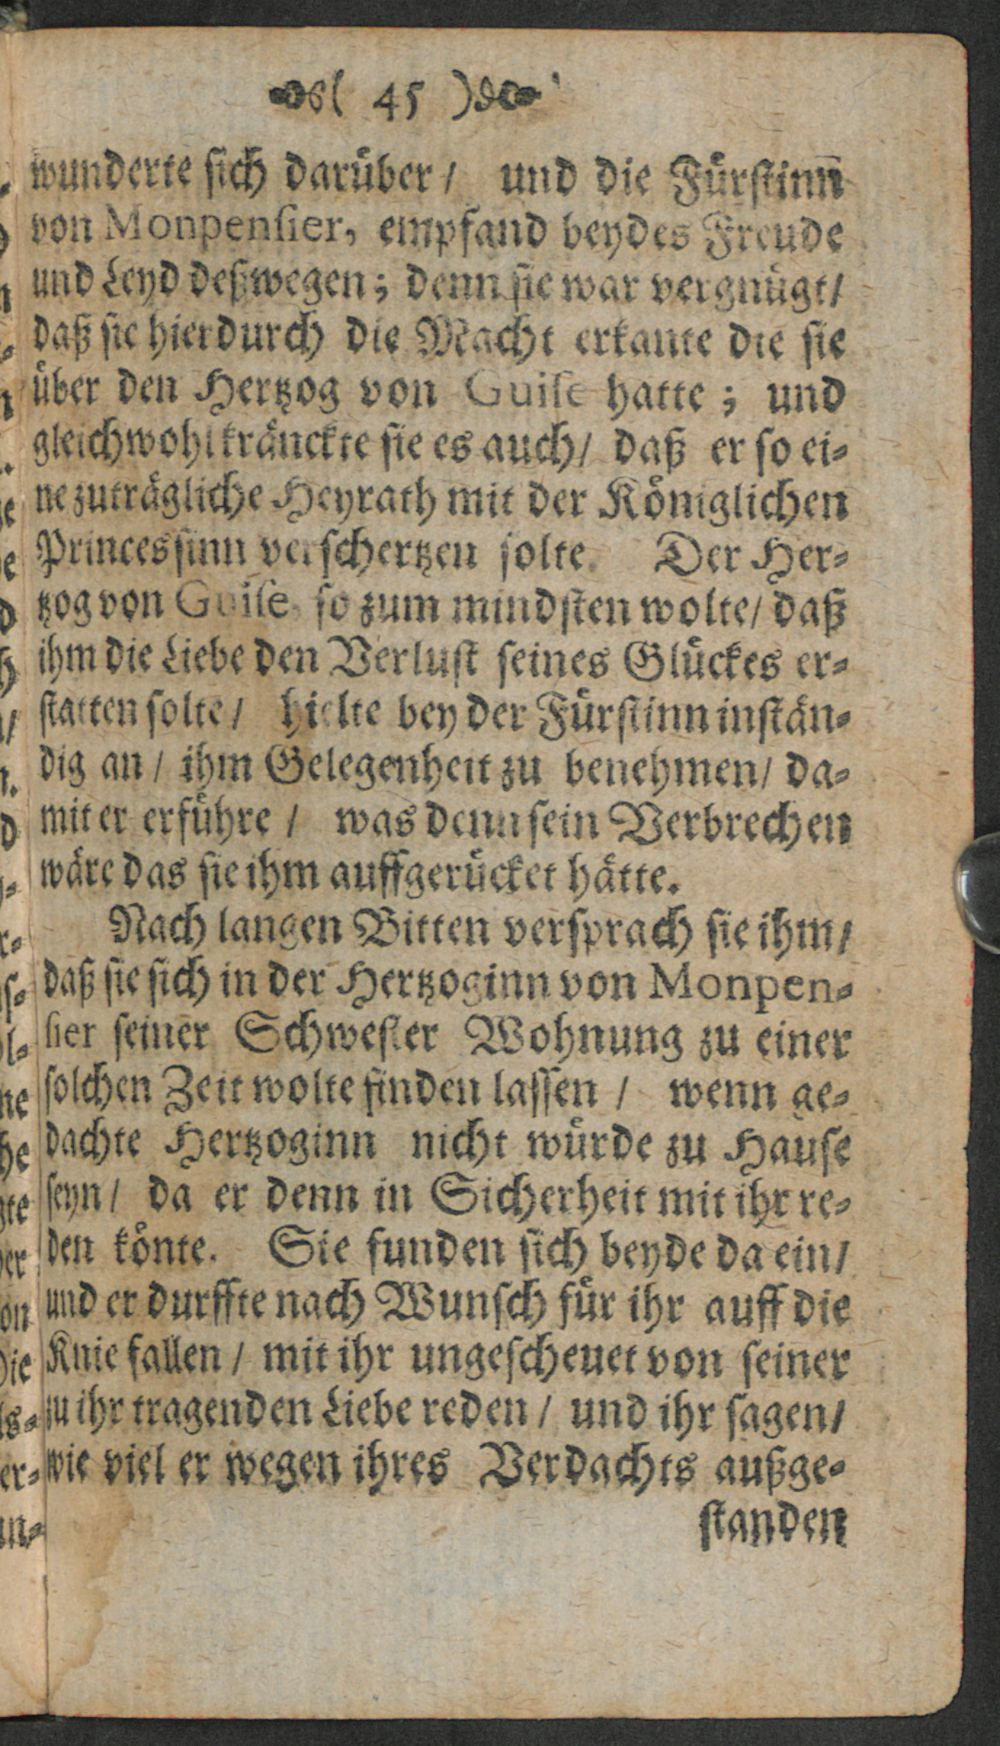 ( 45 )
wunderte sich darüber / und die Fürstinn
von Monpensier, empfand beydes Freude
und Leyd deßwegen; denn sie war vergnügt/
daß sie hierdurch die Macht erkante die sie
über den Hertzog von Guise hatte; und
gleichwohl kränckte sie es auch/ daß er so ei-
ne zuträgliche Heyrath mit der Königlichen
Princessinn verschertzen solte. Der Her-
tzog von Guise, so zum mindsten wolte/ daß
ihm die Liebe den Verlust seines Glückes er-
statten solte / hielte bey der Fürstinn instän-
dig an / ihm Gelegenheit zu benehmen/ da-
mit er erführe / was denn sein Verbrechen
wäre das sie ihm auffgerücket hätte.
Nach langen Bitten versprach sie ihm/
daß sie sich in der Hertzoginn von Monpen-
sier seiner Schwester Wohnung zu einer
solchen Zeit wolte finden lassen / wenn ge-
dachte Hertzoginn nicht würde zu Hause
seyn/ da er denn in Sicherheit mit ihr re-
den könte. Sie funden sich beyde da ein/
und er durffte nach Wunsch für ihr auff die
Knie fallen / mit ihr ungescheuet von seiner
zu ihr tragenden Liebe reden / und ihr sagen/
wie viel er wegen ihres Verdachts außge-
standen